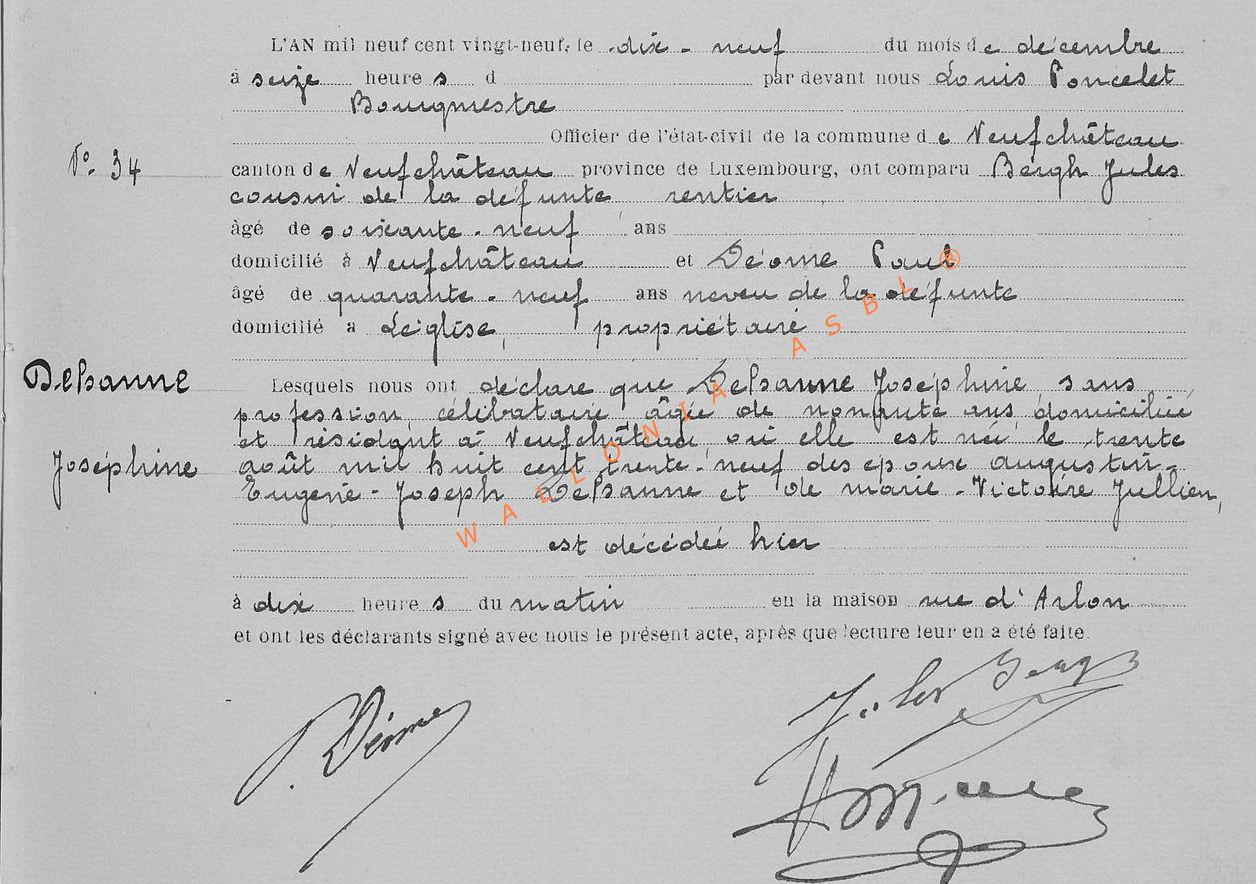 L'AN mil neuf cent vingt-neuf, le dix - neuf du mois de décembre
à seize heures d par devant nous Louis Poncelet
Bourgmestre
Officier de l'état-civil de la commune de Neufchâteau
N° 34
canton de Neufchâteau province de Luxembourg, ont comparu Bergh Jules
cousin de la défunte rentier
âgé de soixante - neuf ans
domicilié à Neufchâteau et Déome Paul
âgé de quarante - neuf ans neveu de la défunte
domicilié à Léglise, propriétaire
Delsanne
Joséphine
Lesquels nous ont déclaré que Delsanne Joséphine sans
profession célibataire âgée de nonante ans domiciliée
et résidant à Neufchâteau où elle est née le trente
août mil huit cent trente - neuf des époux Augustin -
Eugène - Joseph Delsanne et de Marie - Victoire Jullien,
est décédée hier
à dix heures du matin en la maison rue d'Arlon
et ont les déclarants signé avec nous le présent acte, après que lecture leur en a été faite.
P. Déome
Jules Bergh
WALLONIA ASBL ®